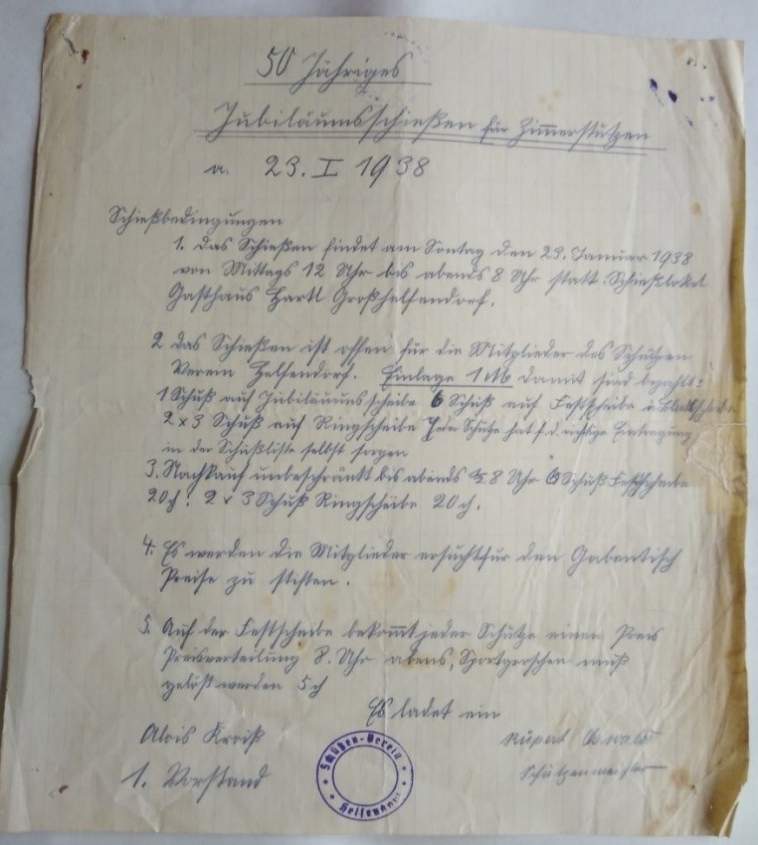 50 Jähriges
Jubiläumsschießen für Zimmerstutzen
a. 23. I 1938
Schießbedingungen
1. Das Schießen findet am Sontag den 23. Januar 1938
von Mittags 12 Uhr bis abends 8 Uhr statt. Schießlokal
Gasthaus Hartl Großhelfendorf.
2 Das Schießen ist offen für die Mitglieder des Schützen
Verein Helfendorf. Einlage 1 M damit sind bezahlt:
1 Schuß auf Jubiläumsscheibe 6 Schuß auf Festscheibe u.
2 x 3 Schuß auf Ringscheibe Jeder Schütze hat f. d. richtige Eintragung
in der Schußliste selbst sorgen
3. Nachkauf unbeschränkt bis abends 8 Uhr 6 Schuß Festscheibe
20 ₰. 2 x 3 Schuß Ringscheibe 20 ₰.
4. Es werden die Mitglieder ersucht für den Gabentisch
Preise zu stiften.
5. Auf der Festscheibe bekommt jeder Schütze einen Preis
Preisverteilung 8. Uhr abens, Sportgroschen muß
gelößt werden 5 ₰
Es ladet ein
Alois Kroiß
Rupert
1. Vorstand
Schützenmeister
Schützen-Verein
Helfendorf